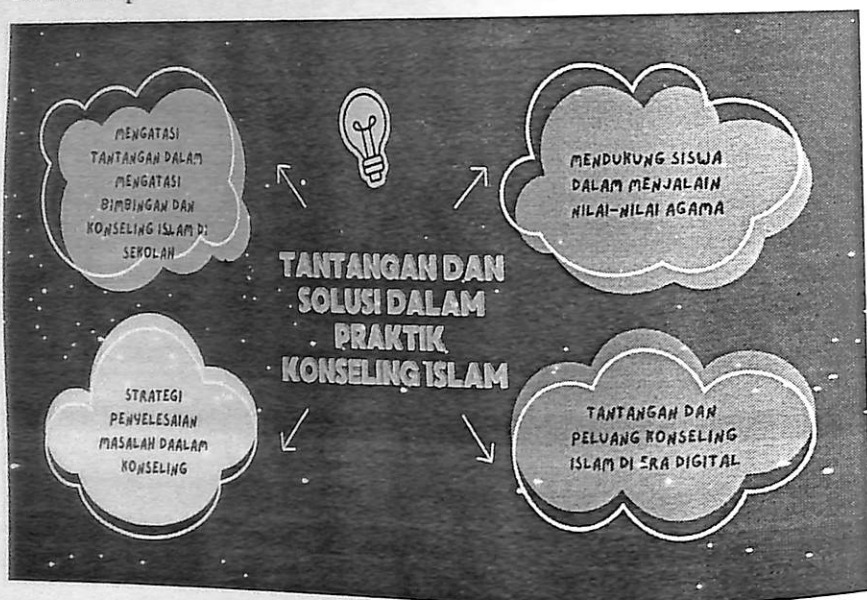 MENGATASI
TANTANGAN DALAM
MENGATASI
BIMBINGAN DAN
KONSELING ISLAM DI
SEKOLAH
MENDUKUNG SISWA
DALAM MENJALAIN
NILAI-NILAI AGAMA
TANTANGAN DAN
SOLUSI DALAM
PRAKTIK
KONSELING ISLAM
STRATEGI
PENYELESAIAN
MASALAH DAALAM
KONSELING
TANTANGAN DAN
PELUANG KONSELING
ISLAM DI ERA DIGITAL